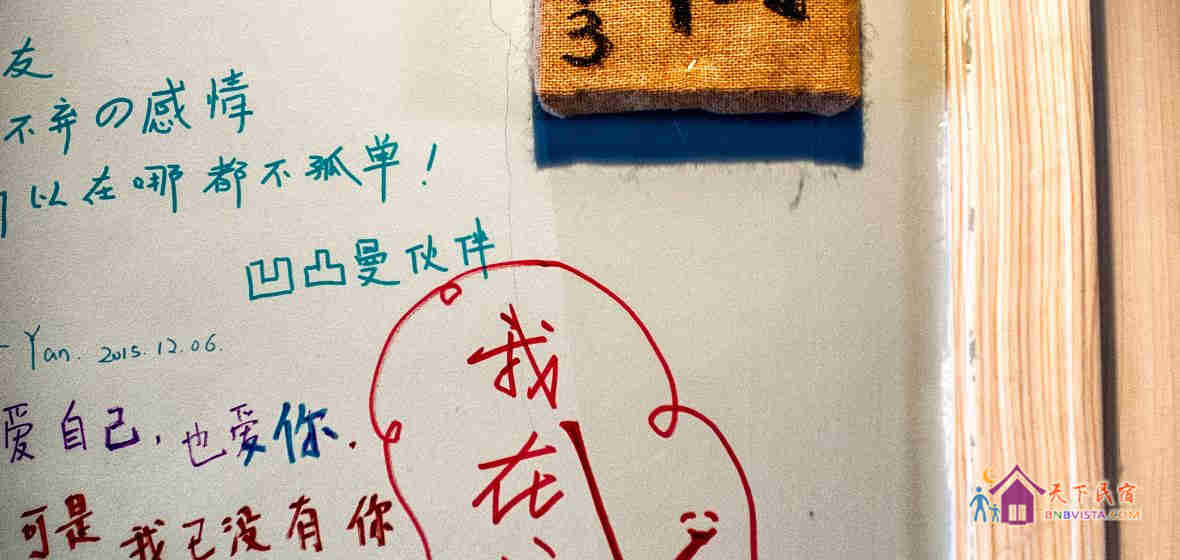 友
不弃の感情
以在哪都不孤单！
凹凸曼伙伴
Yan. 2015.12.06.
爱自己，也爱你.
可是 我已没有你
3
我
在
天下民宿
BNBVISTA.COM